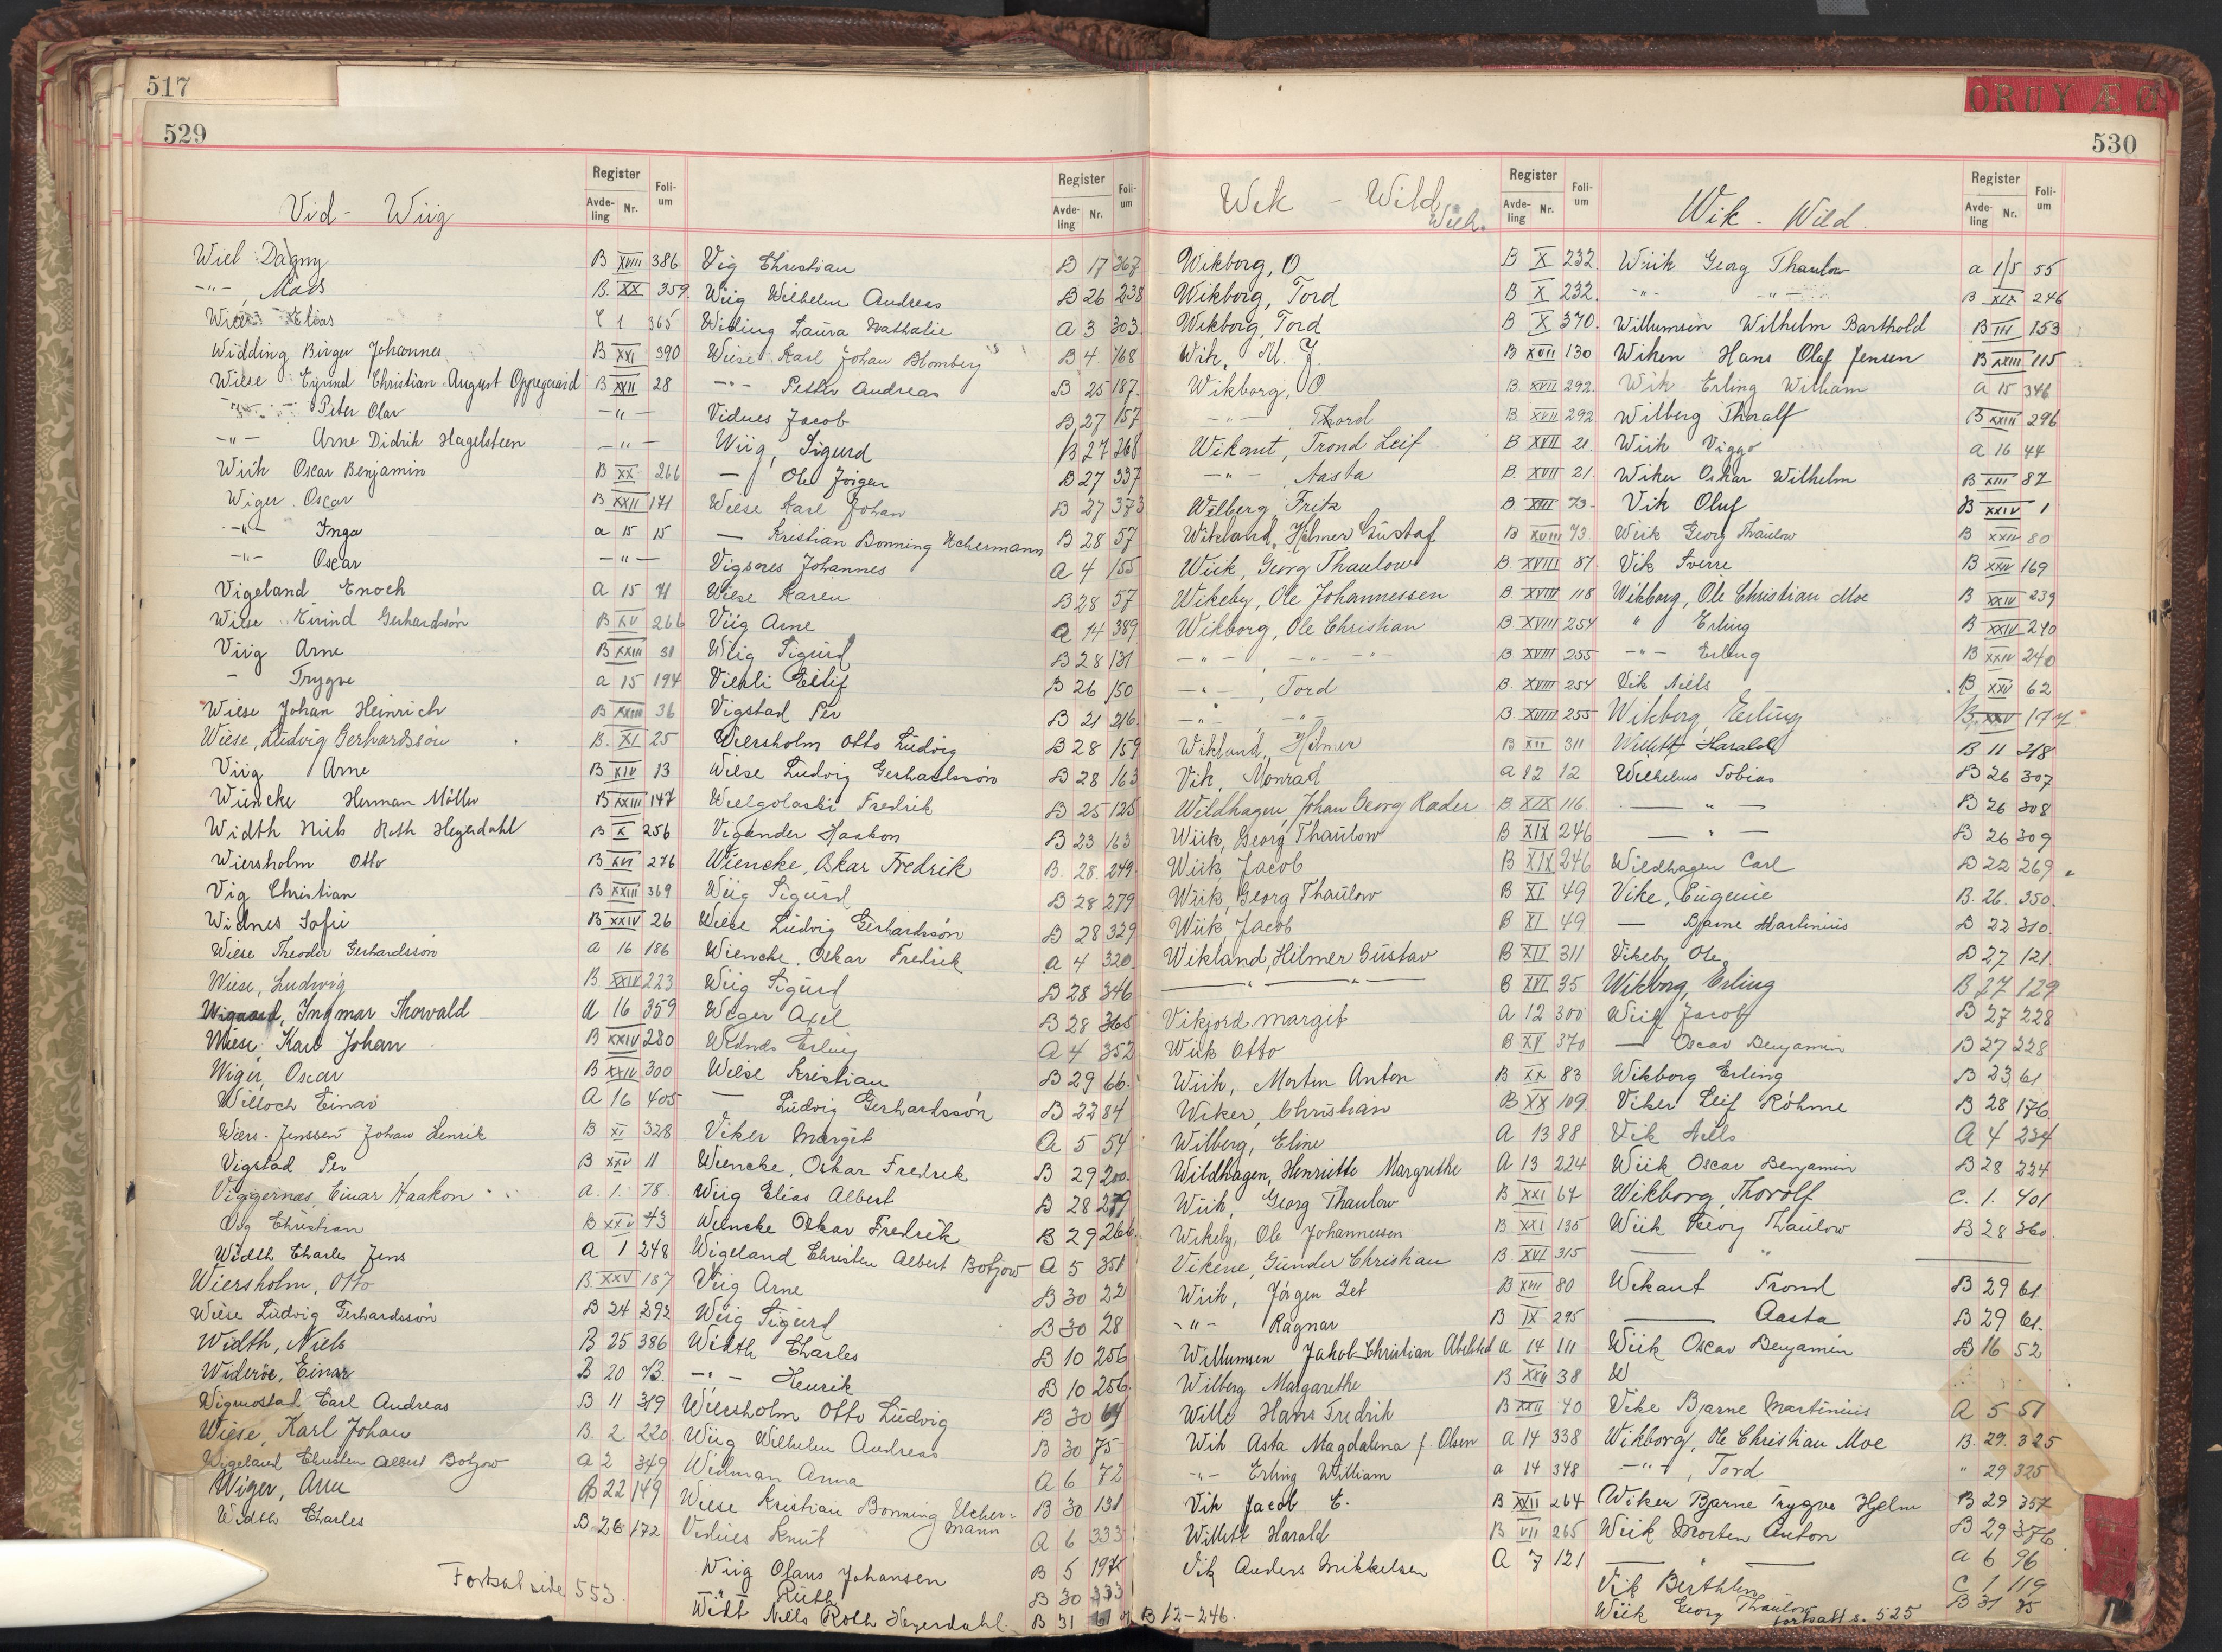 517
529
Register
Avde-ling Nr.
Foli-um
Vid - Wiig
Wiel Dagny B XVIII 386
-"- , Mads B. XX 359.
Elias C 1 365
Widding Birger Johannes B XXI 390
Wiese Eyvind Christian August Oppegaard B XXII 28
-"- Peter Olav -"-
-"- Arne Didrik Hagelsteen -"-
Wiik Oscar Benjamin B XX 266
Wiger Oscar B XXII 171
-"- Inga a 15 15
-"- Oscar -"-
Vigeland Enoch a 15 71
Wiese Eivind Gerhardssön B XV 266
Viig Arne B XXIII 31
- Trygve a 15 194
Wiese Johan Heinrich B XXIII 36
Wiese, Ludvig Gerhardssön B. XI 25
Viig Arne B XIV 13
Wiencke Herman Möller B XXIII 147
Width Niels Roth Heyerdahl B X 256
Wiersholm Otto B XVI 276
Vig Christian B XXIII 369
Widnes Sofie B XXIV 26
Wiese Theodor Gerhardssön a 16 186
Wiese, Ludwig B. XXIV 223
Wigaard, Ingmar Thorvald A 16 359
Wiese, Karl Johan B XXIV 280
Wiger, Oscar B XXIV 300
Willoch Einar A 16 405
Wiers-Jenssen Johan Henrik B XI 328
Vigstad Per B XXV 11
Viggernæs, Einar Haakon a. 1. 78.
Vig Christian B XXV 43
Width Charles Jens a 1 248
Wiersholm, Otto B XXV 187
Wiese Ludvig Gerhardssön B 24 292
Width, Niels B 25 386
Wideröe, Einar B 20 73.
Vigmostad Carl Andreas B 11 319
Wiese, Karl Johan B. 2 220.
Wigeland Christen Albert Botjow a 2 349
Wiger, Arne B 22 149
Width Charles B. 26 172
Fortsat side 553.
Register
Avde-ling Nr.
Foli-um
Vig Christian B 17 367
Wiig Wilhelm Andreas B 26 238
Widing Laura Nathalie A 3 303.
Wiese Karl Johan Blomberg B 4 768
-"- Petter Andreas B 25 187.
Vidnes Jacob B 27 157
Wiig, Sigurd B 27 268
- Ole Jörgen B 27 337
Wiese Karl Johan B 27 373
- Kristian Bonning Uchermann B 28 57
Vigsnes Johannes A 4 155
Wiese Karen B 28 57
Viig Arne a 14 389
Wiig Sigurd B 28 131
Viekli Eilif B 26 150
Vigstad Per B 21 216.
Wiersholm Otto Ludvig B 28 159
Wiese Ludvig Gerhardssön B 28 163
Wielgolaski Fredrik B 25 125
Vigander Haakon B 23 163
Wiencke, Oskar Fredrik B. 28. 249.
Wiig Sigurd B 28 279
Wiese Ludvig Gerhardssön B 28 329
Wiencke. Oskar Fredrik a 4 320.
Wiig Sigurd B 28 346
Wiger Axel B 28 365
Erling a 4 352
Wiese Kristian B 29 66.
- Ludvig Gerhardssön B 22 84
Viker Margit A 5 54
Wiencke, Oskar Fredrik B 29 200.
Wiig Elias Albert B 28 279
Wiencke Oskar Fredrik B 29 266.
Wigeland Christen Albert Botjow A 5 351
Viig Arne B 30 22
Wiig Sigurd B 30 28
Width Charles B 10 256
-"- Henrik B 10 256
Wiersholm Otto Ludvig B 30 64
Wiig Wilhelm Andreas B 30 75
Widman Anna a 6 72
Wiese Kristian Bonning Ucher=mann B 30 131
Vidnes Knut a 6 333
Wiig Olaus Johansen B 5 197
-"- Ruth B 30 333
Widt Nils Roth Heyerdahl. B 31 61 og B 12-246.
ORUY ÆØ
530
Register
Avde-ling Nr.
Foli-um
Wik - Wild
Wilh.
Wikborg, O B X 232.
Wikborg, Tord B X 232.
Wikborg, Tord B X 370.
Wik, M. J. B XVII 130
Wikborg, O B. XVII 292.
-"- Thord B. XVII 292
Wikant, Trond Leif B XVII 21
-"- , Aasta B. XVII 21.
Wilberg, Fritz B XVII 73.
Wikland, Hilmer Gustaf B XVIII 73
Wiik, Georg Thaulow B XVIII 87.
Wikeby, Ole Johannessen B. XVIII 118
Wikborg, Ole Christian B. XVIII 254
-"- , -"- -"- B. XVIII 255
-"- , Tord B. XVIII 254
-"- -"- B. XVIII 255
Wikland, Hilmer B XII 311
Vik, Monrad a 12 12
Wildhagen, Johan Georg Ræder B XIX 116
Wiik, Georg Thaulow B XIX 246
Wiik, Jacob B XIX 246
Wiik, Georg Thaulow B XI 49
Wiik, Jacob B XI 49
Wikland, Hilmer Gustav B XII 311
-"- -"- B XVI 35
Vikjord, Margit A 12 300
Wiik Otto B XV 370
Wiik, Morten Anton B XX 83
Wiker, Christian B XX 109.
Wilberg, Eline A 13 88
Wildhagen, Henriette Margrethe A 13 224
Wiik, Georg Thaulow B XXI 64
Wikeby, Ole Johannessen B. XXI 135
Vikene, Gunder Christian B. XVI 315
Wiik, Jörgen Zet B XVIII 80
-"- Ragnar B IX 295
Willumsen Jakob Christian Abelsted a 14 111
Wilberg Margarethe B XXII 38
Wille Hans Fredrik B XXII 40
Wik Asta Magdalena f. Olsen a 14 338
-"- Erling William a 14 348
Vik Jacob E. B XXII 264
Willett Harald B VII 265
Vik Anders Mikkelsen A 7 121
Register
Avde-ling Nr.
Foli-um
Wik - Wild
Wiik Georg Thaulow a 15 55
-"- -"- B XIX 246
Willumsen Wilhelm Barthold B III 153
Wiken Hans Olaf Jensen B XXIII 115
Wik Erling William a 15 346
Wilberg Thoralf B XXIII 296
Wiik Viggo a 16 44
Wiker Oskar Wilhelm B XIII 87
Vik Oluf B XXIV 1
Wiik Georg Thaulow B XXIV 80
Vik Sverre B XXIV 169
Wikborg, Ole Christian Moe B XXIV 239
" Erling B XXIV 240
-"- Erling B XXIV 240
Vik Niels B XXV 62
Wikborg, Erling B. XXV 174
Willett Harald B 11 218
Wilhelms Tobias B 26 307
-"- B 26 308
-"- B 26 309
Wildhagen Carl B 22 269
Vike, Eugenie B. 26. 350.
- Bjarne Martinius B 22 310.
Vikeby Ole B 27 121.
Wikborg, Erling B 27 129
Wiik Jacob B 27 228
- Oscar Benjamin B 27 228
Wikborg Erling B 23 61
Viker Leif Röhme B 28 176.
Vik Nils A 4 234
Wiik Oscar Benjamin B 28 224
Wikborg, Thorolf C. 1. 401
Wiik Georg Thaulow B 28 360.
-"-
Wikant Trond B 29 61
Aasta B 29 61.
Wiik Oscar Benjamin B 16 52
W
Vike Bjarne Martinius A 5 51
Wikborg, Ole Christian Moe B. 29. 325
-"- , Tord " 29 325
Wiker Bjarne Trygve Hjelm B 29 357
Wiik Morten Anton B 29 376
-"- a 6 96
Vik Berthlin C 1 119
Wiik Georg Thaulow B 31 35
fortsatt s. 525